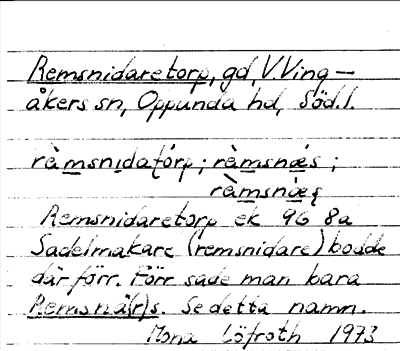 Remsnidaretorp, gd, V. Ving–
åkers sn, Oppunda hd, Söd. l.
rὰmsnıdatórp; rὰmsnǽs;
rὰmsnǽş
Remsnidaretorp ek 96 8a
Sadelmakare (remsnidare) bodde
där förr. Förr sade man bara
Remsnä(r)s. Se detta namn.
Mona Löfroth 1973